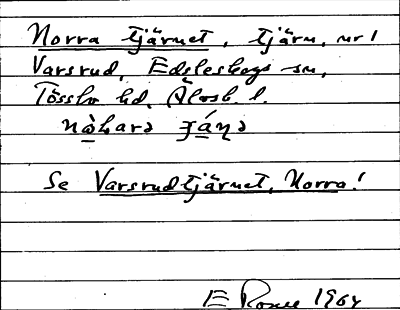 Norra tjärnet, tjärn, nr 1
Varsrud, Edsleskogs sn,
Tössbo hd, Älvsb. l.
Se Varsrudtjärnet, Norra!
E 1964